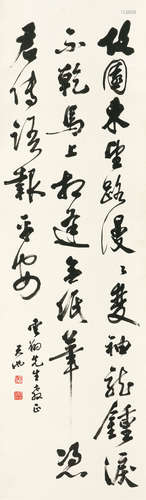 故園東望路漫〻雙袖龍鍾淚
不乾馬上相逢無紙筆憑
君傳語報平安
雲翔先生教正